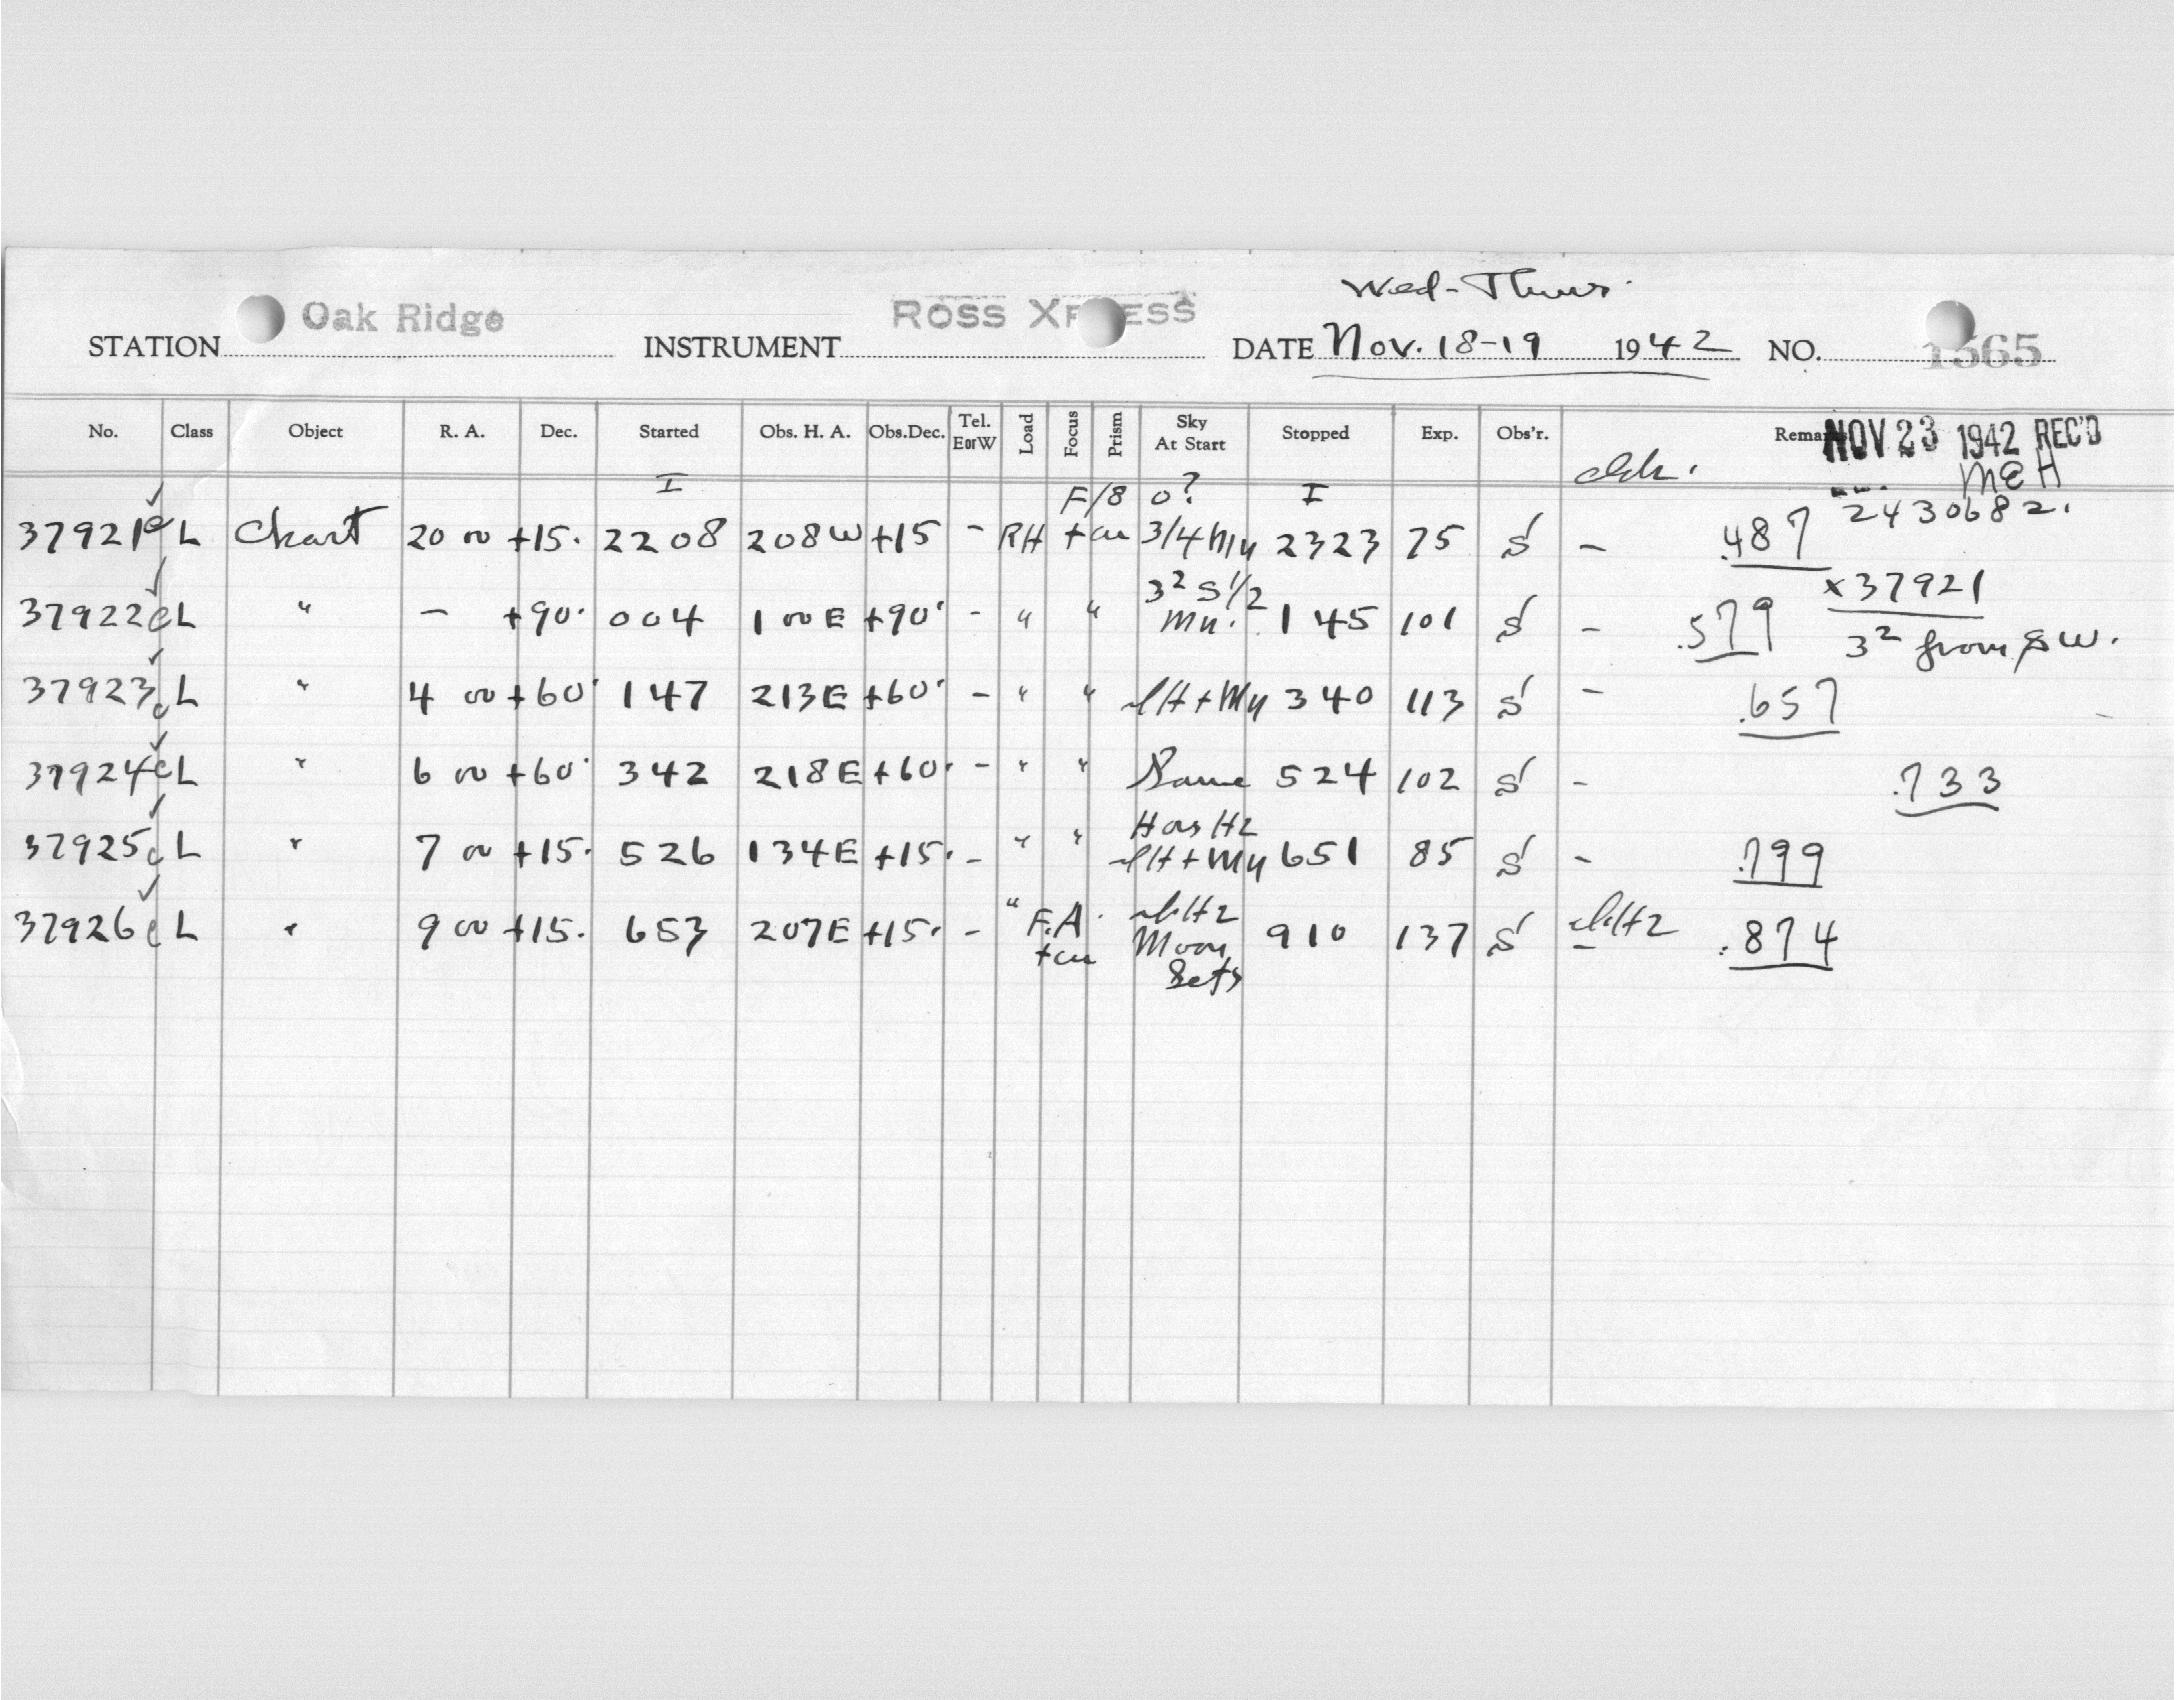 Wed-Thurs.
STATION Oak Ridge INSTRUMENT ROSS XPRESS DATE Nov. 18-19 1942 NO. 1365
No. Class Object R. A. Dec. Started Obs. H. A. Obs.Dec. Tel. EorW Load Focus Prism Sky At Start Stopped Exp. Obs'r. Remarks
NOV 23 1942 REC'D
MEH
I F/8 0? I
2430682.
37921c L Chart 20 00 +15. 2208 208W +15 - RH + cu 3/4 Mn 2323 75 S - .487
x37921
3² S 1/2
37922c L " - +90. 004 1 00 E +90. - " " Mn. 145 101 S - .579
3² from SW.
37923c L " 4 00 +60. 147 213E +60. - " " H + Mn 340 113 S - .657
37924c L " 6 00 +60. 342 218E +60. - " " Same 524 102 S - .733
Hz
37925c L " 7 00 +15. 526 134E +15. - " " H + Mn 651 85 S - .799
37926c L " 9 00 +15. 653 207E +15. - " F.A. + cu Hz Moon Sets 910 137 S Hz .874